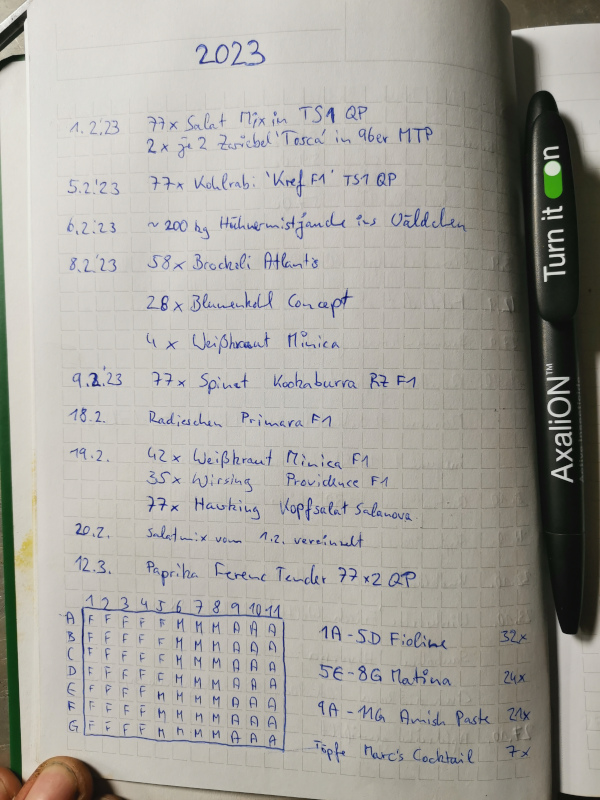 2023
1.2.'23 77x Salat Mix in TS1 QP
2x je 2 Zwiebel 'Tosca' in 96er MTP
5.2.'23 77x Kohlrabi 'Kref F1' TS1 QP
6.2.'23 ~200 kg Hühnermistjauche ins Wäldchen
8.2.'23 58x Brockoli Atlantis
28x Blumenkohl Concept
4x Weißkraut Minica
9.2.'23 77x Spinat Kookaburra RZ F1
18.2. Radieschen Primara F1
19.2. 42x Weißkraut Minica F1
35x Wirsing Providence F1
77x Hawking Kopfsalat Salanova
20.2. Salatmix vom 1.2. vereinzelt
12.3. Paprika Ferenc Tender 77x2 QP
1 2 3 4 5 6 7 8 9 10 11
A F F F F F M M M A A A
B F F F F F M M M A A A
C F F F F F M M M A A A
D F F F F F M M M A A A
E F F F F M M M M A A A
F F F F F M M M M A A A
G F F F F M M M M A A A
1A-5D Fioline 32x
5E-8G Matina 24x
9A-11G Amish Paste 21x
Töpfe Marc's Cocktail 7x
Turn it on
AxaliON™